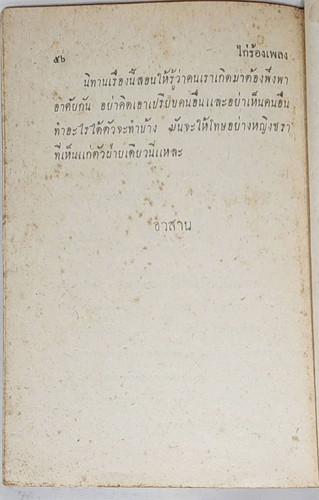 ๕๖ ไก่ร้องเพลง
นิทานเรื่องนี้สอนให้รู้ว่าคนเราเกิดมาต้องพึ่งพา
อาศัยกัน อย่าคิดเอาเปรียบคนอื่นและอย่าเห็นคนอื่น
ทำอะไรได้ตัวจะทำบ้าง มันจะให้โทษอย่างหญิงชรา
ที่เห็นแก่ตัวฝ่ายเดียวนี่แหละ
อวสาน